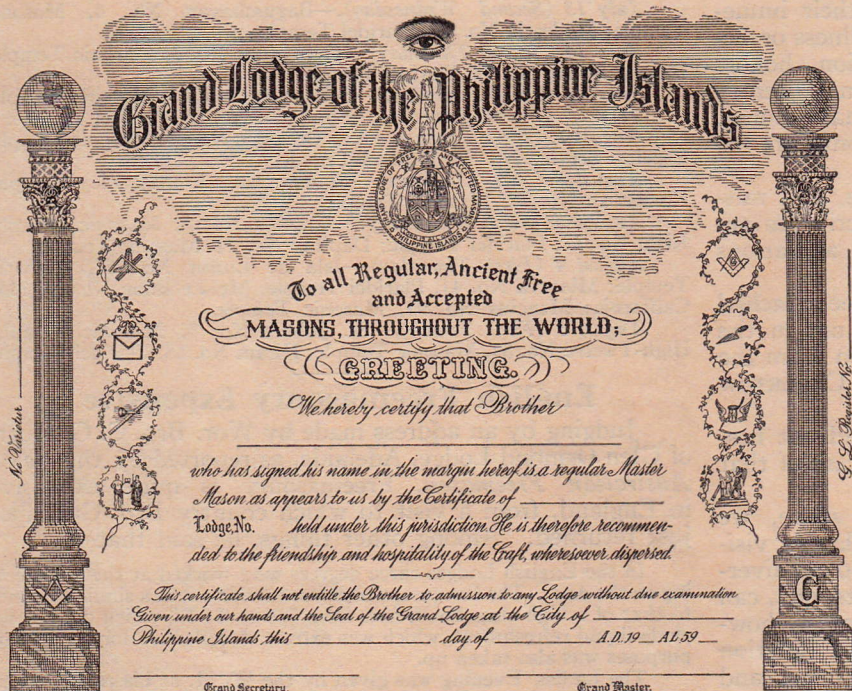 Grand Lodge of the Philippine Islands
GRAND LODGE OF FREE AND ACCEPTED MASONS
PHILIPPINE ISLANDS
To all Regular, Ancient Free
and Accepted
MASONS, THROUGHOUT THE WORLD;
GREETING.
We hereby certify that Brother
who has signed his name in the margin hereof is a regular Master
Mason as appears to us by the Certificate of
Lodge, No. held under this jurisdiction. He is therefore recommen-
ded to the friendship and hospitality of the Caft, wheresoever dispersed.
This certificate shall not entitle the Brother to admission to any Lodge without due examination
Given under our hands and the Seal of the Grand Lodge at the City of
Philippine Islands this day of A.D. 19 A.L. 59
Grand Secretary.
Grand Master.
Ne Varietur
G. L. Register No.
G
G